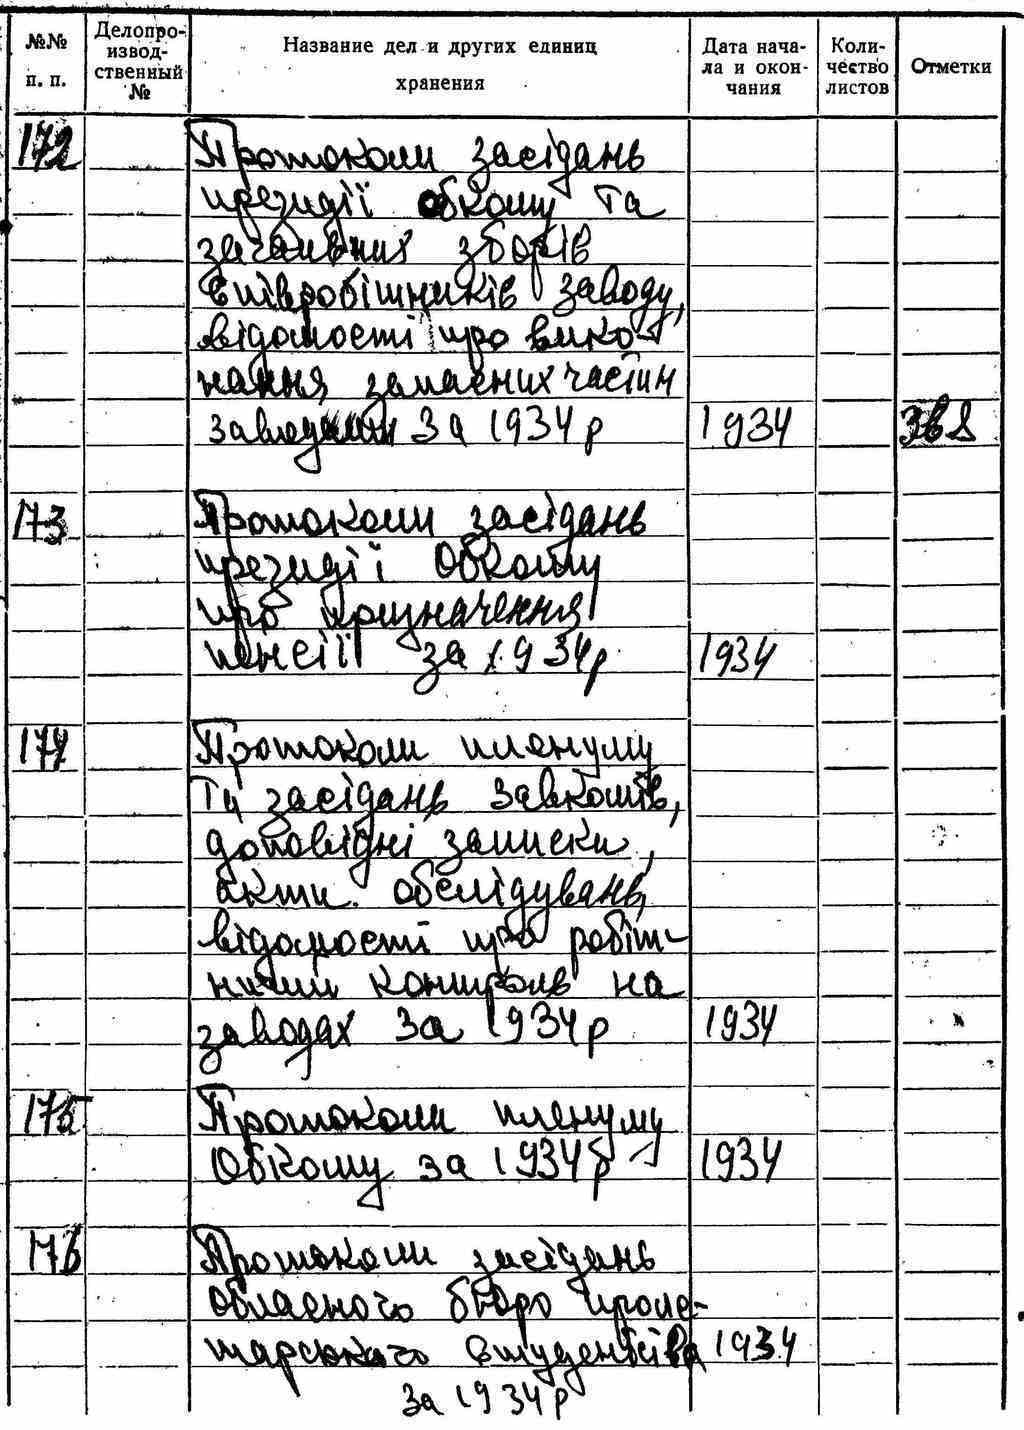 №№ п. п. Делопроизводственный № Название дел и других единиц хранения Дата начала и окончания Количество листов Отметки
172 Протоколи засідань
президії обкому та
загальних зборів
співробітників заводу,
відомості про вико-
нання запасних частин
заводами за 1934 р 1934
173 Протоколи засідань
президії Обкому
про призначення
пенсії за 1934 р 1934
174 Протоколи пленуму
та засідань завкомів,
доповідні записки,
акти обслідувань,
відомості про робіт-
ничий контроль на
заводах за 1934 р 1934
175 Протоколи пленуму
Обкому за 1934 р 1934
176 Протоколи засідань
обласного бюро проле-
тарського студентства 1934
за 1934 р